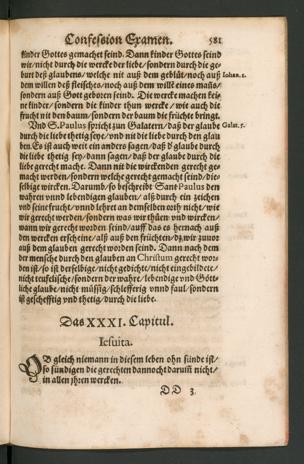 Confession Examen. 581
kinder Gottes gemachet seind. Dann kinder Gottes seind
wir/nicht durch die wercke der liebe/sondern durch die ge-
burt deß glaubens/welche nit auß dem geblüt/noch auß Iohan. 1.
dem willen deß fleisches/noch auß dem wille eines mañs/
sondern auß Gott geboren seind. Die wercke machen kei-
ne kinder/sondern die kinder thun wercke/wie auch die
frucht nit den baum/sondern der baum die früchte bringt.
Vnd S. Paulus spricht zun Galatern/daß der glaube Galat. 5.
durch die liebe thetig sey/vnd nit die liebe durch den glau
ben. Es ist auch weit ein anders sagen/daß d' glaube durch
die liebe thetig sey/dann sagen/daß der glaube durch die
liebe gerecht mache. Dann nit die wirckenden gerecht ge-
macht werden/sondern welche gerecht gemacht seind/die-
selbige wircken. Darumb/so beschreibt Sant Paulus den
wahren vnnd lebendigen glauben/alß durch ein zeichen
vnd seine frucht/vnnd lehret an demselben orth nicht/wie
wir gerecht werden/sondern was wir thuen vnd wircken/
wann wir gerecht worden seind/auff das es hernach auß
den wercken erscheine/alß auß den früchten/dz wir zuuor
auß dem glauben gerecht worden seind. Dann nach dem
der mensche durch den glauben an Christum gerecht wor-
den ist/so ist derselbige/nicht gedichte/nicht eingebildete/
nicht teufelische/sondern der wahre/lebendige vnd Götte
liche glaube/nicht müssig/schlefferig vnnd faul/sondern
ist gescheftig vnd thetig/durch die liebe.
Das XXXI. Capitul.
Iesuita.
OB gleich niemann in diesem leben ohn sünde ist/
so sündigen die gerechten dannocht darum̃ nicht/
in allen jhren wercken.
DD 3